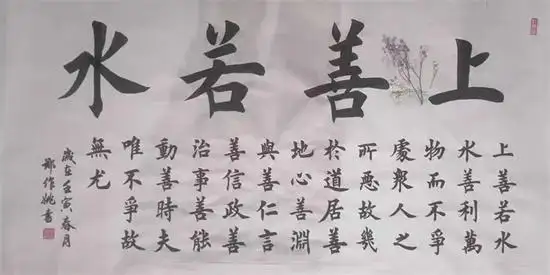 上善若水
上善若水
水善利萬
物而不爭
處衆人之
所惡故幾
於道居善
地心善淵
與善仁言
善信政善
治事善能
動善時夫
唯不爭故
無尤
歲在壬寅春月
鄭作姚書